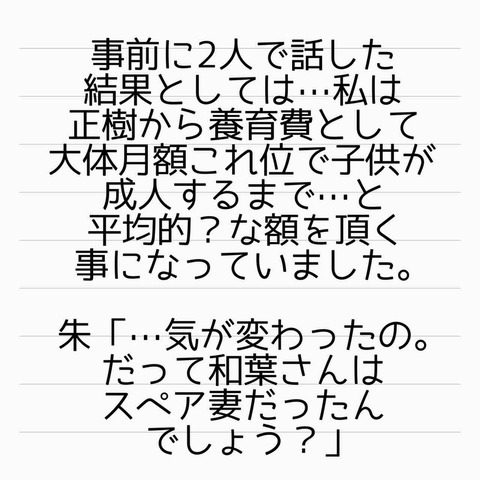 事前に2人で話した
結果としては…私は
正樹から養育費として
大体月額これ位で子供が
成人するまで…と
平均的？な額を頂く
事になっていました。
朱「…気が変わったの。
だって和葉さんは
スペア妻だったん
でしょう？」